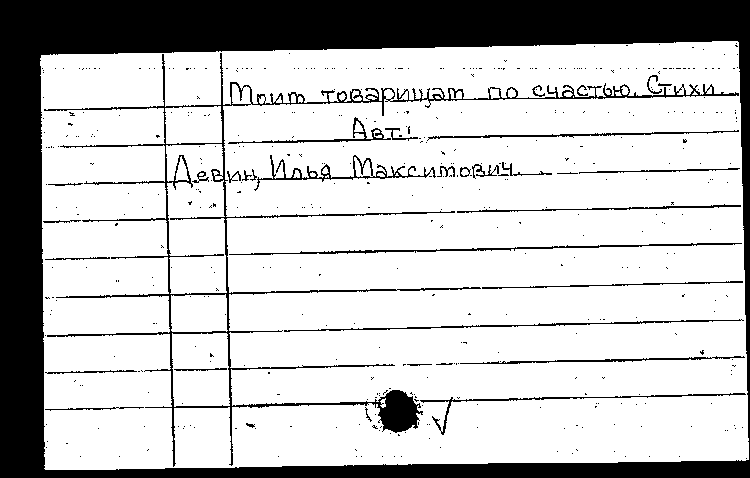 Моим товарищам по счастью. Стихи.
Авт.:
Девин, Илья Максимович.